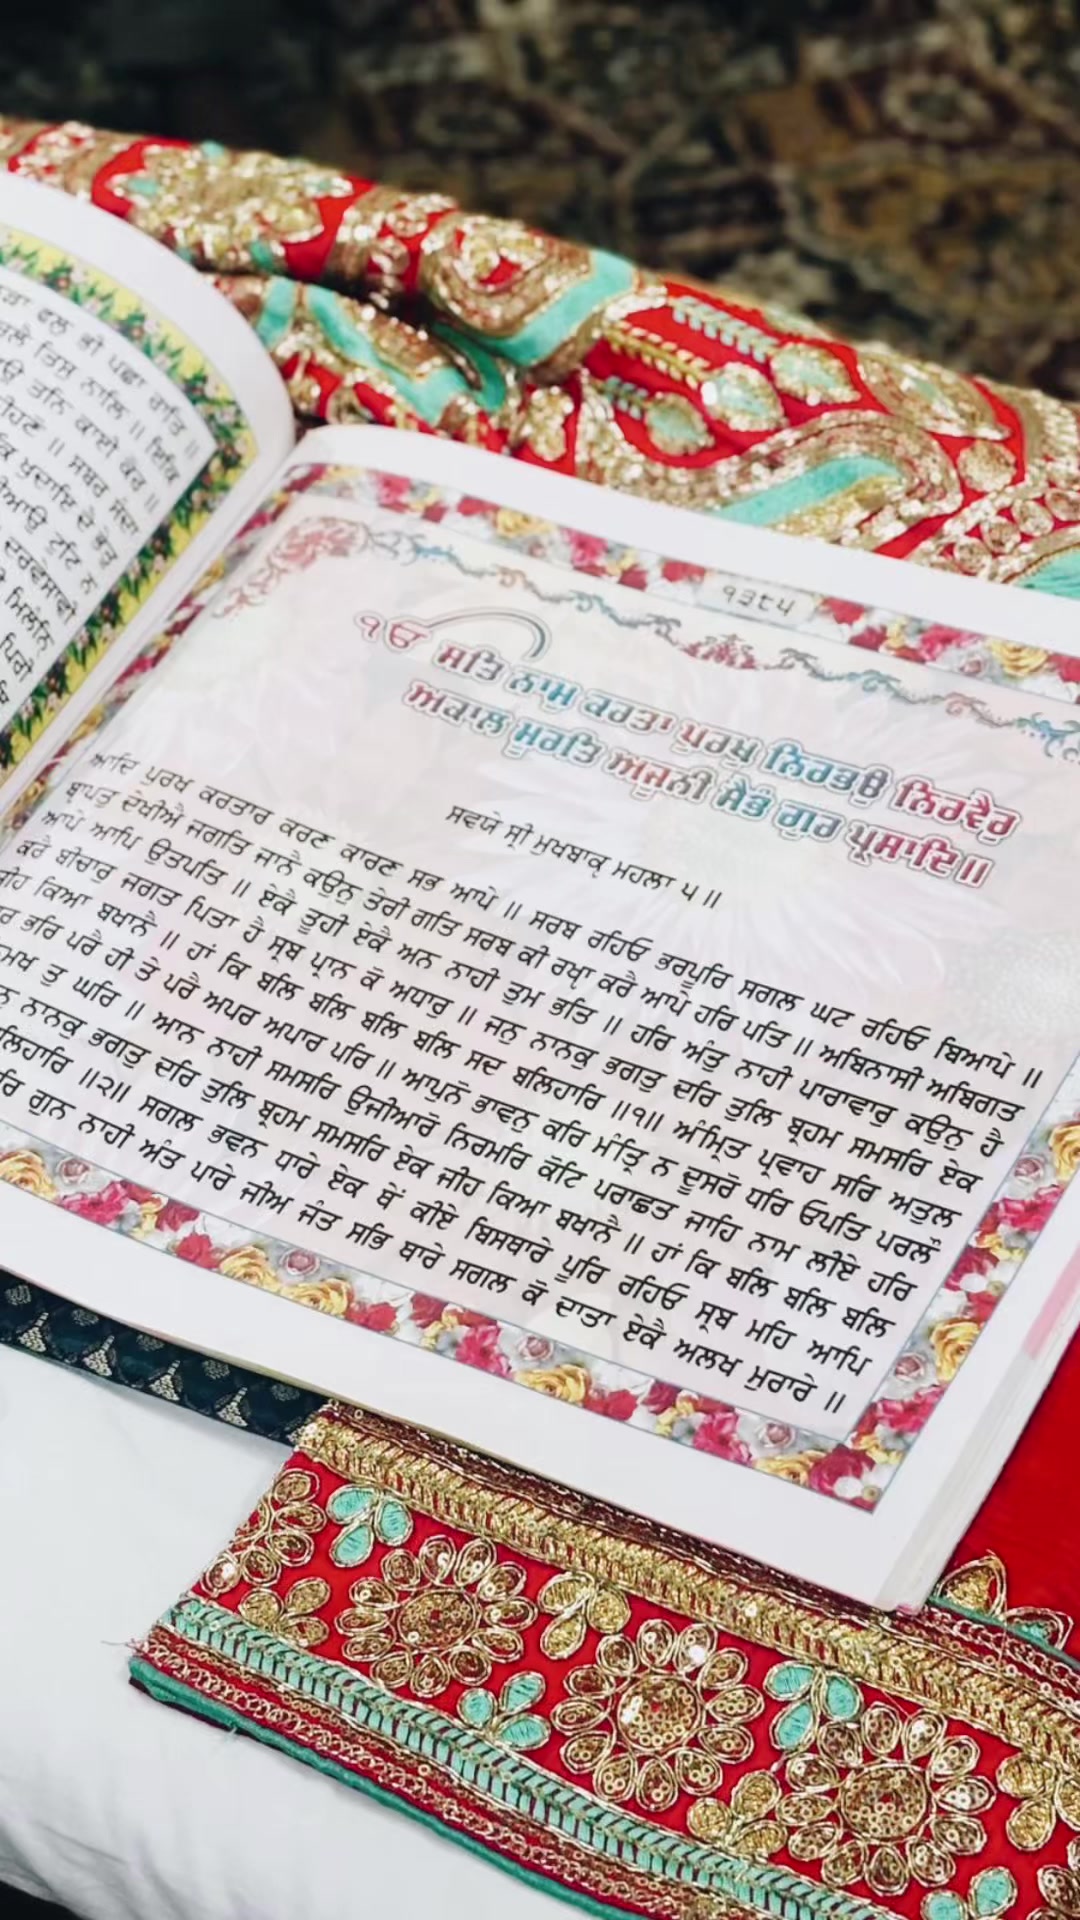 ਵਲ ਭੀ ਪਛਾ ਰਾਤਿ ॥
ਤਿਸੁ ਨਾਲਿ ॥ ਇਕਿ
ਤਨਿ ਕਾਈ ਕੋਰ ॥
॥ ਸਬਰ ਸੰਦਾ
ਖੁਦਾਇ ਦੇ ਭੇਤੁ
ਟੁਟਿ ਨ
ਦਰਵੇਸਾਵੀ
ਮਿਲੰਨਿ
ਪਿਰੀ
੧੩੮੫
ੴ ਸਤਿ ਨਾਮੁ ਕਰਤਾ ਪੁਰਖੁ ਨਿਰਭਉ ਨਿਰਵੈਰੁ
ਅਕਾਲ ਮੂਰਤਿ ਅਜੂਨੀ ਸੈਭੰ ਗੁਰ ਪ੍ਰਸਾਦਿ॥
ਸਵਯੇ ਸ੍ਰੀ ਮੁਖਬਾਕੵ ਮਹਲਾ ੫ ॥
ਆਦਿ ਪੁਰਖ ਕਰਤਾਰ ਕਰਣ ਕਾਰਣ ਸਭ ਆਪੇ ॥ ਸਰਬ ਰਹਿਓ ਭਰਪੂਰਿ ਸਗਲ ਘਟ ਰਹਿਓ ਬਿਆਪੇ ॥
ਬੵਾਪਤੁ ਦੇਖੀਐ ਜਗਤਿ ਜਾਨੈ ਕਉਨੁ ਤੇਰੀ ਗਤਿ ਸਰਬ ਕੀ ਰਖੵਾ ਕਰੈ ਆਪੇ ਹਰਿ ਪਤਿ ॥ ਅਬਿਨਾਸੀ ਅਬਿਗਤ
ਆਪੇ ਆਪਿ ਉਤਪਤਿ ॥ ਏਕੈ ਤੂਹੀ ਏਕੈ ਅਨ ਨਾਹੀ ਤੁਮ ਭਤਿ ॥ ਹਰਿ ਅੰਤੁ ਨਾਹੀ ਪਾਰਾਵਾਰੁ ਕਉਨੁ ਹੈ
ਕਰੈ ਬੀਚਾਰੁ ਜਗਤ ਪਿਤਾ ਹੈ ਸ੍ਰਬ ਪ੍ਰਾਨ ਕੋ ਅਧਾਰੁ ॥ ਜਨੁ ਨਾਨਕੁ ਭਗਤੁ ਦਰਿ ਤੁਲਿ ਬ੍ਰਹਮ ਸਮਸਰਿ ਏਕ
ਜੀਹ ਕਿਆ ਬਖਾਨੈ ॥ ਹਾਂ ਕਿ ਬਲਿ ਬਲਿ ਬਲਿ ਬਲਿ ਸਦ ਬਲਿਹਾਰਿ ॥੧॥ ਅੰਮ੍ਰਿਤ ਪ੍ਰਵਾਹ ਸਰਿ ਅਤੁਲ
ਭਰਿ ਪਰੈ ਹੀ ਤੇ ਪਰੈ ਅਪਰ ਅਪਾਰ ਪਰਿ ॥ ਆਪੁਨੋ ਭਾਵਨੁ ਕਰਿ ਮੰਤ੍ਰਿ ਨ ਦੂਸਰੋ ਧਰਿ ਓਪਤਿ ਪਰਲੌ
ਤੁ ਘਰਿ ॥ ਆਨ ਨਾਹੀ ਸਮਸਰਿ ਉਜੀਆਰੋ ਨਿਰਮਰਿ ਕੋਟਿ ਪਰਾਛਤ ਜਾਹਿ ਨਾਮ ਲੀਏ ਹਰਿ
ਨਾਨਕੁ ਭਗਤੁ ਦਰਿ ਤੁਲਿ ਬ੍ਰਹਮ ਸਮਸਰਿ ਏਕ ਜੀਹ ਕਿਆ ਬਖਾਨੈ ॥ ਹਾਂ ਕਿ ਬਲਿ ਬਲਿ ਬਲਿ
॥੨॥ ਸਗਲ ਭਵਨ ਧਾਰੇ ਏਕ ਥੇਂ ਕੀਏ ਬਿਸਥਾਰੇ ਪੂਰਿ ਰਹਿਓ ਸ੍ਰਬ ਮਹਿ ਆਪਿ
ਗੁਨ ਨਾਹੀ ਅੰਤ ਪਾਰੇ ਜੀਅ ਜੰਤ ਸਭਿ ਥਾਰੇ ਸਗਲ ਕੋ ਦਾਤਾ ਏਕੈ ਅਲਖ ਮੁਰਾਰੇ ॥